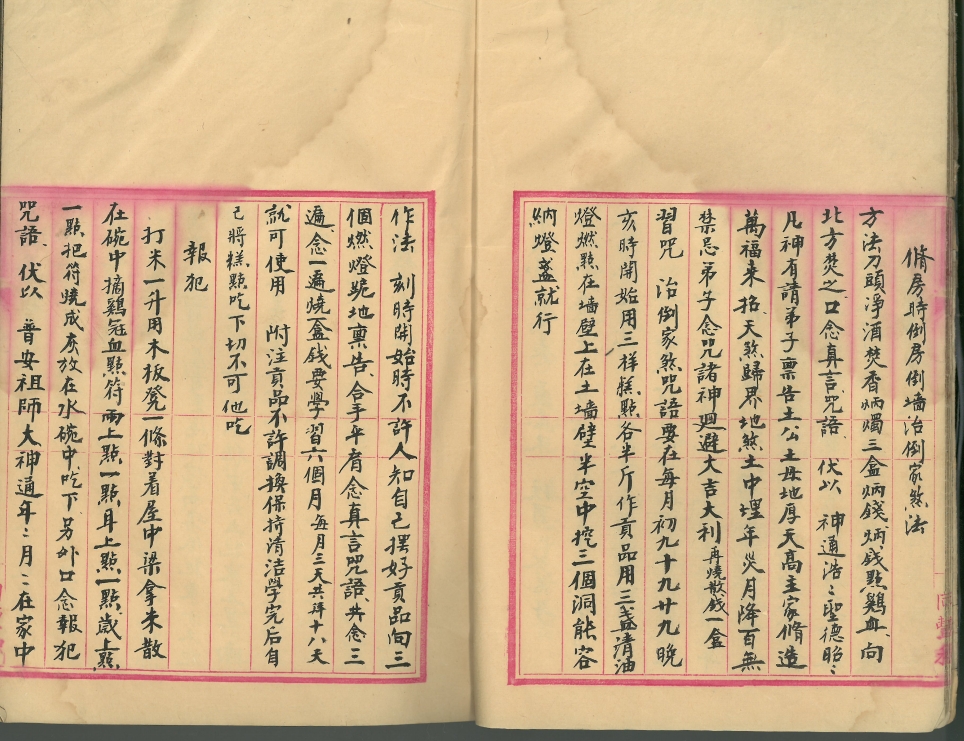 脩房時倒房倒墻治倒家煞法
方法刀頭淨酒焚香炳燭三盒炳錢炳錢點鷄血向
北方焚之口念真言咒語 伏以 神通浩〻聖德昭〻
凡神有請弟子禀告土公土母地厚天高主家脩造
萬福來招天煞歸界地煞土中埋年災月降百無
禁忌弟子念咒諸神廻避大吉大利再燒散錢一盒
習咒 治倒家煞咒語要在每月初九十九廿九晚
亥時開始用三樣糕點各半斤作貢品用三盞清油
燈燃點在墻壁上在土墻壁半空中挖三個洞能容
納燈盞就行
作法 刻時開始時不許人知自己擺好貢品向三
個燃燈跪地禀告合手平肩念真言咒語共念三
遍念一遍燒一盒錢要學習六個月每月三天共拜十八天
就可使用 附注貢品不許調換保持清洁學完后自
己將糕點吃下切不可他吃
報犯
打米一升用木板凳一條對着屋中梁拿米散
在碗中摘鷄冠血點符兩上點一點耳上點一點歲上點
一點把符燒成灰放在水碗中吃下另外口念報犯
咒語 伏以 普安祖師大神通年〻月〻在家中